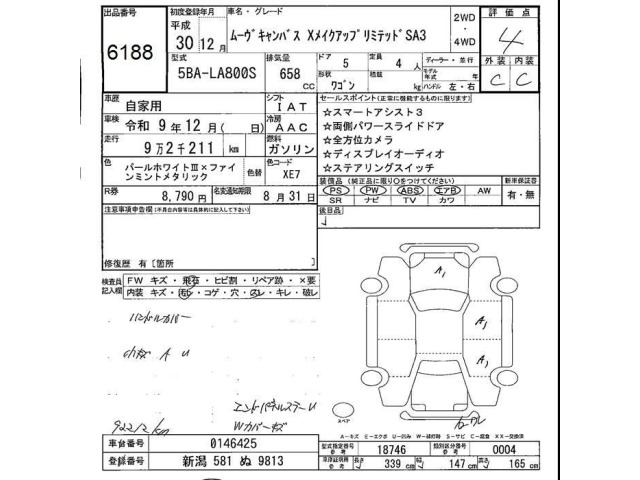 出品番号 初度登録年月 車名・グレード 2WD 評価点
平成 ムーヴキャンバス XメイクアップリミテッドSA3 ・
6188 30年12月 4WD 4
型式 排気量 ドア 5 定員 4人 ディーラー・並行 外装 内装
5BA-LA800S 658 CC 形状 ワゴン 積載 kg モデル年式 年 C C
ハンドル 左・右
車歴 自家用 シフト IAT セールスポイント(正常に機能するものに限ります)
☆スマートアシスト3
車検 令和 9年12月( 日) 冷房 AAC ☆両側パワースライドドア
走行 9万2千211 km 燃料 ガソリン ☆全方位カメラ
☆ディスプレイオーディオ
色 パールホワイトⅢ×ファインミントメタリック 色替 色コード XE7 ☆ステアリングスイッチ
装備品(純正品に限り○をつけてください) 新車保証書
R券 8,790円 名変期限 8月31日 PS PW ABS エアB AW 有・無
SR ナビ TV カワ
注意事項申告欄(不具合内容等は具体的に記入して下さい) 後日品
修復歴 有[箇所 ]
検査員記入欄 FW キズ・飛石・ヒビ割・リペア跡・×要
内装 キズ・汚レ・コゲ・穴・スレ・キレ・破レ
A1
A1
A1
ハンドルカバー
小キズ A U
エンドパネルステーU
92212km Wカバーキズ
スペア
A-キズ E-エクボ U-凹み W-補修跡 S-サビ C-腐食 XX-交換済
車台番号 0146425 型式指定番号 参考 18746 類別区分番号 参考 0004
登録番号 新潟 581 ぬ 9813 車検証明 参考 長さ 339 cm 幅 147 cm 高さ 165 cm